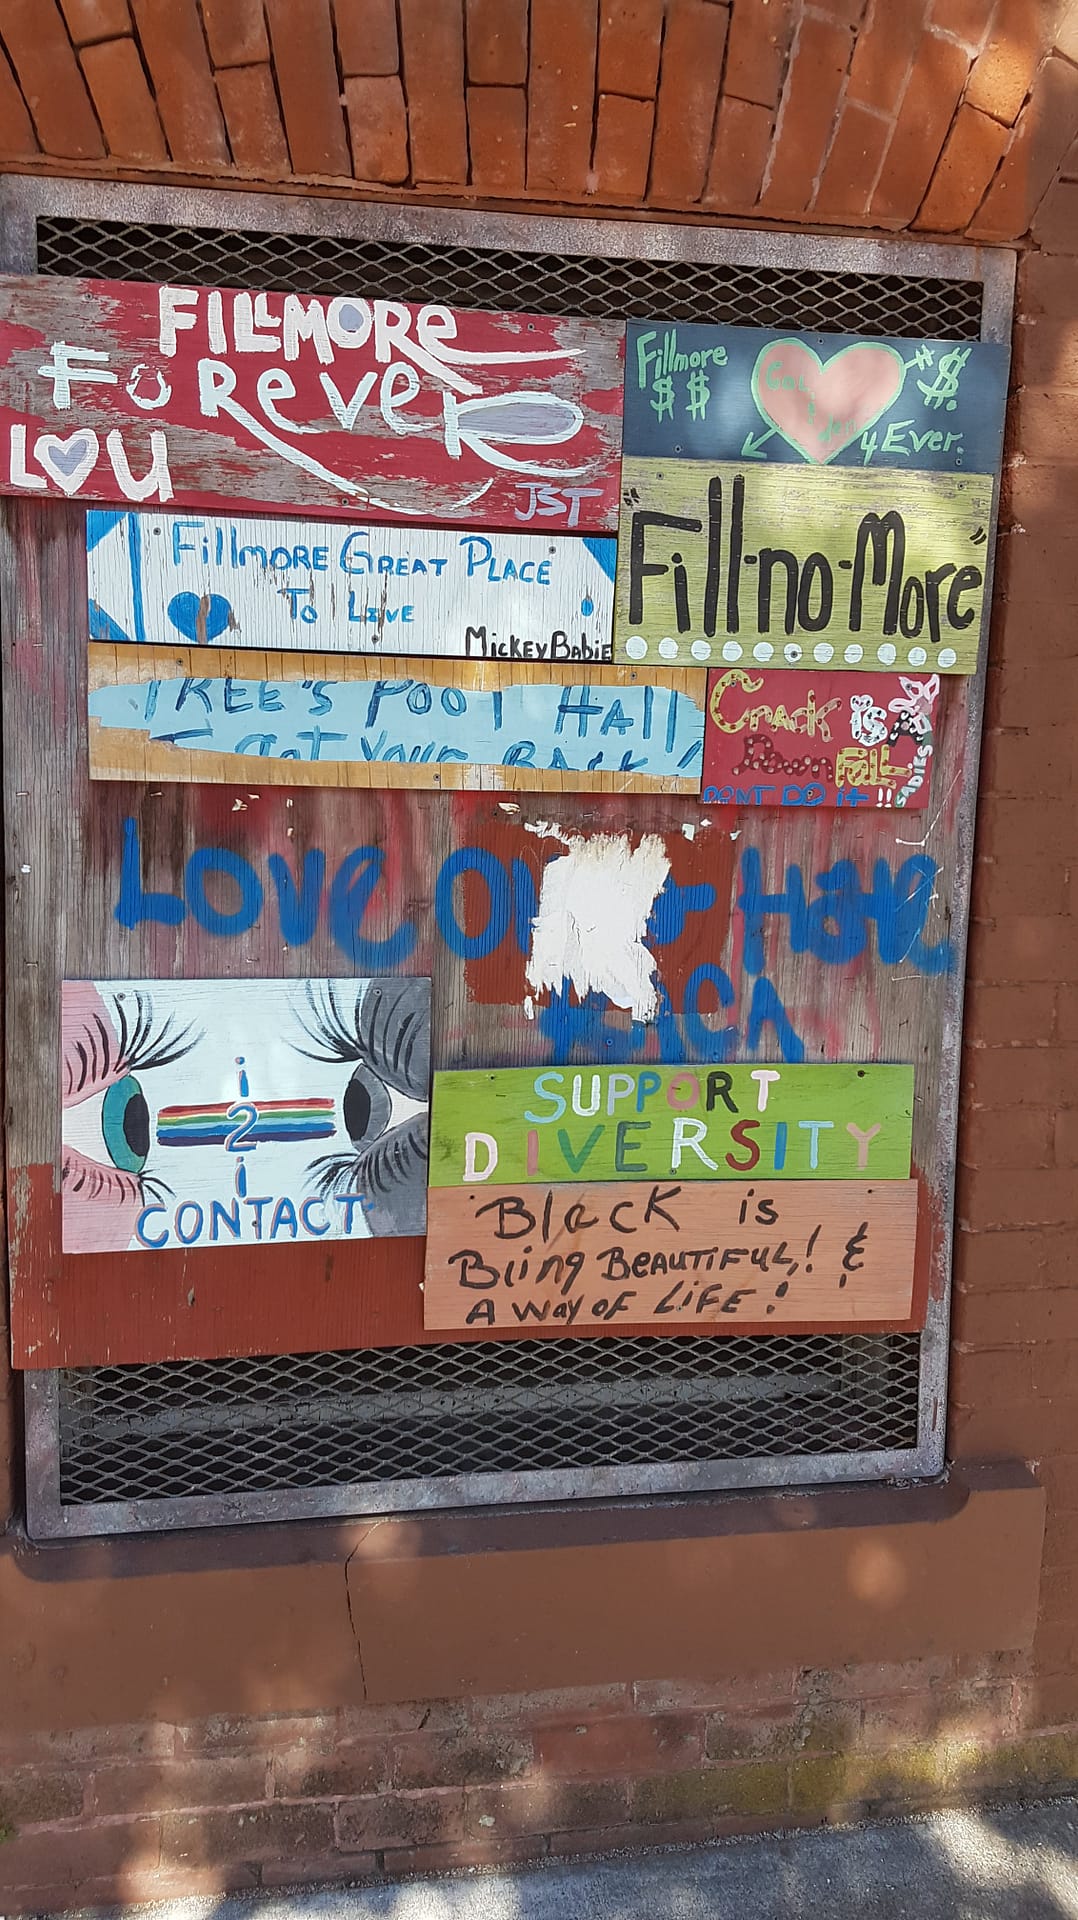 FILLMORE
FOREVER
LOU
JST
Fillmore
$ $
$
4 Ever.
"Fill-no-More"
FILLMORE GREAT PLACE
TO LIVE
MickeyBabie
TREE'S POOL HAll
I GOT YOUR BACK!
Crack is A
Down FALL
DONT DO it !!
SADIES
LOVE
HAVE
i
2
i
CONTACT
SUPPORT
DIVERSITY
BlacK is
Biing BEAUTIFUL,! &
A WAY OF LIFE!